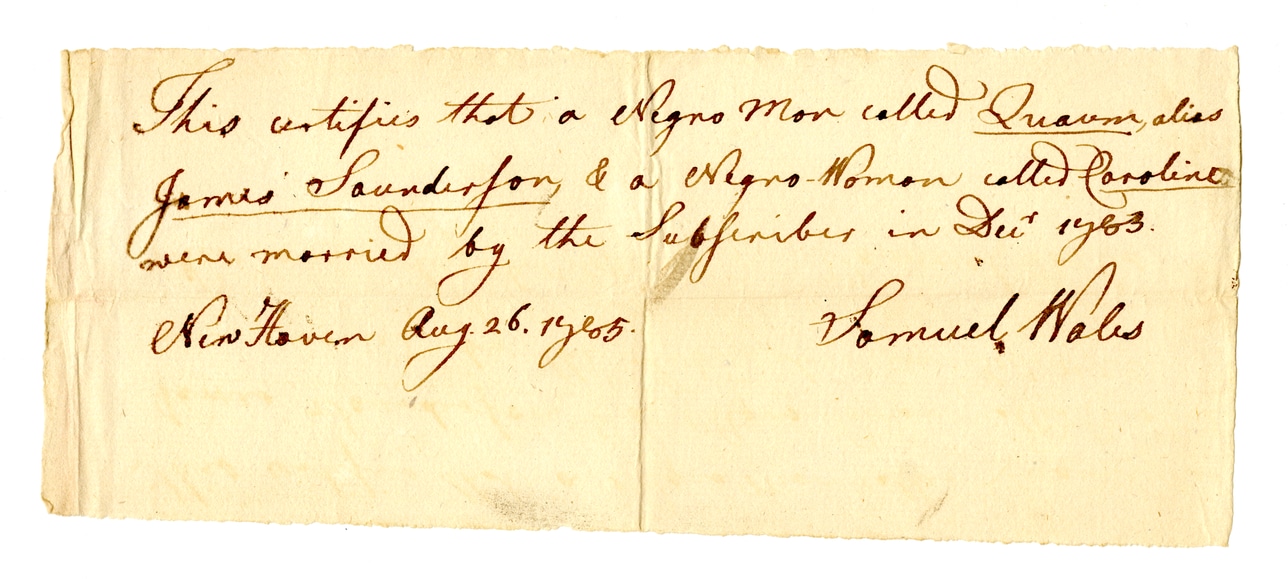 This certifies that a Negro Man called Quaum, alias
James Saunderson, & a Negro-Woman called Caroline
were married by the Subscriber in Decr 1783.
New Haven Aug. 26. 1785.
Samuel Wales